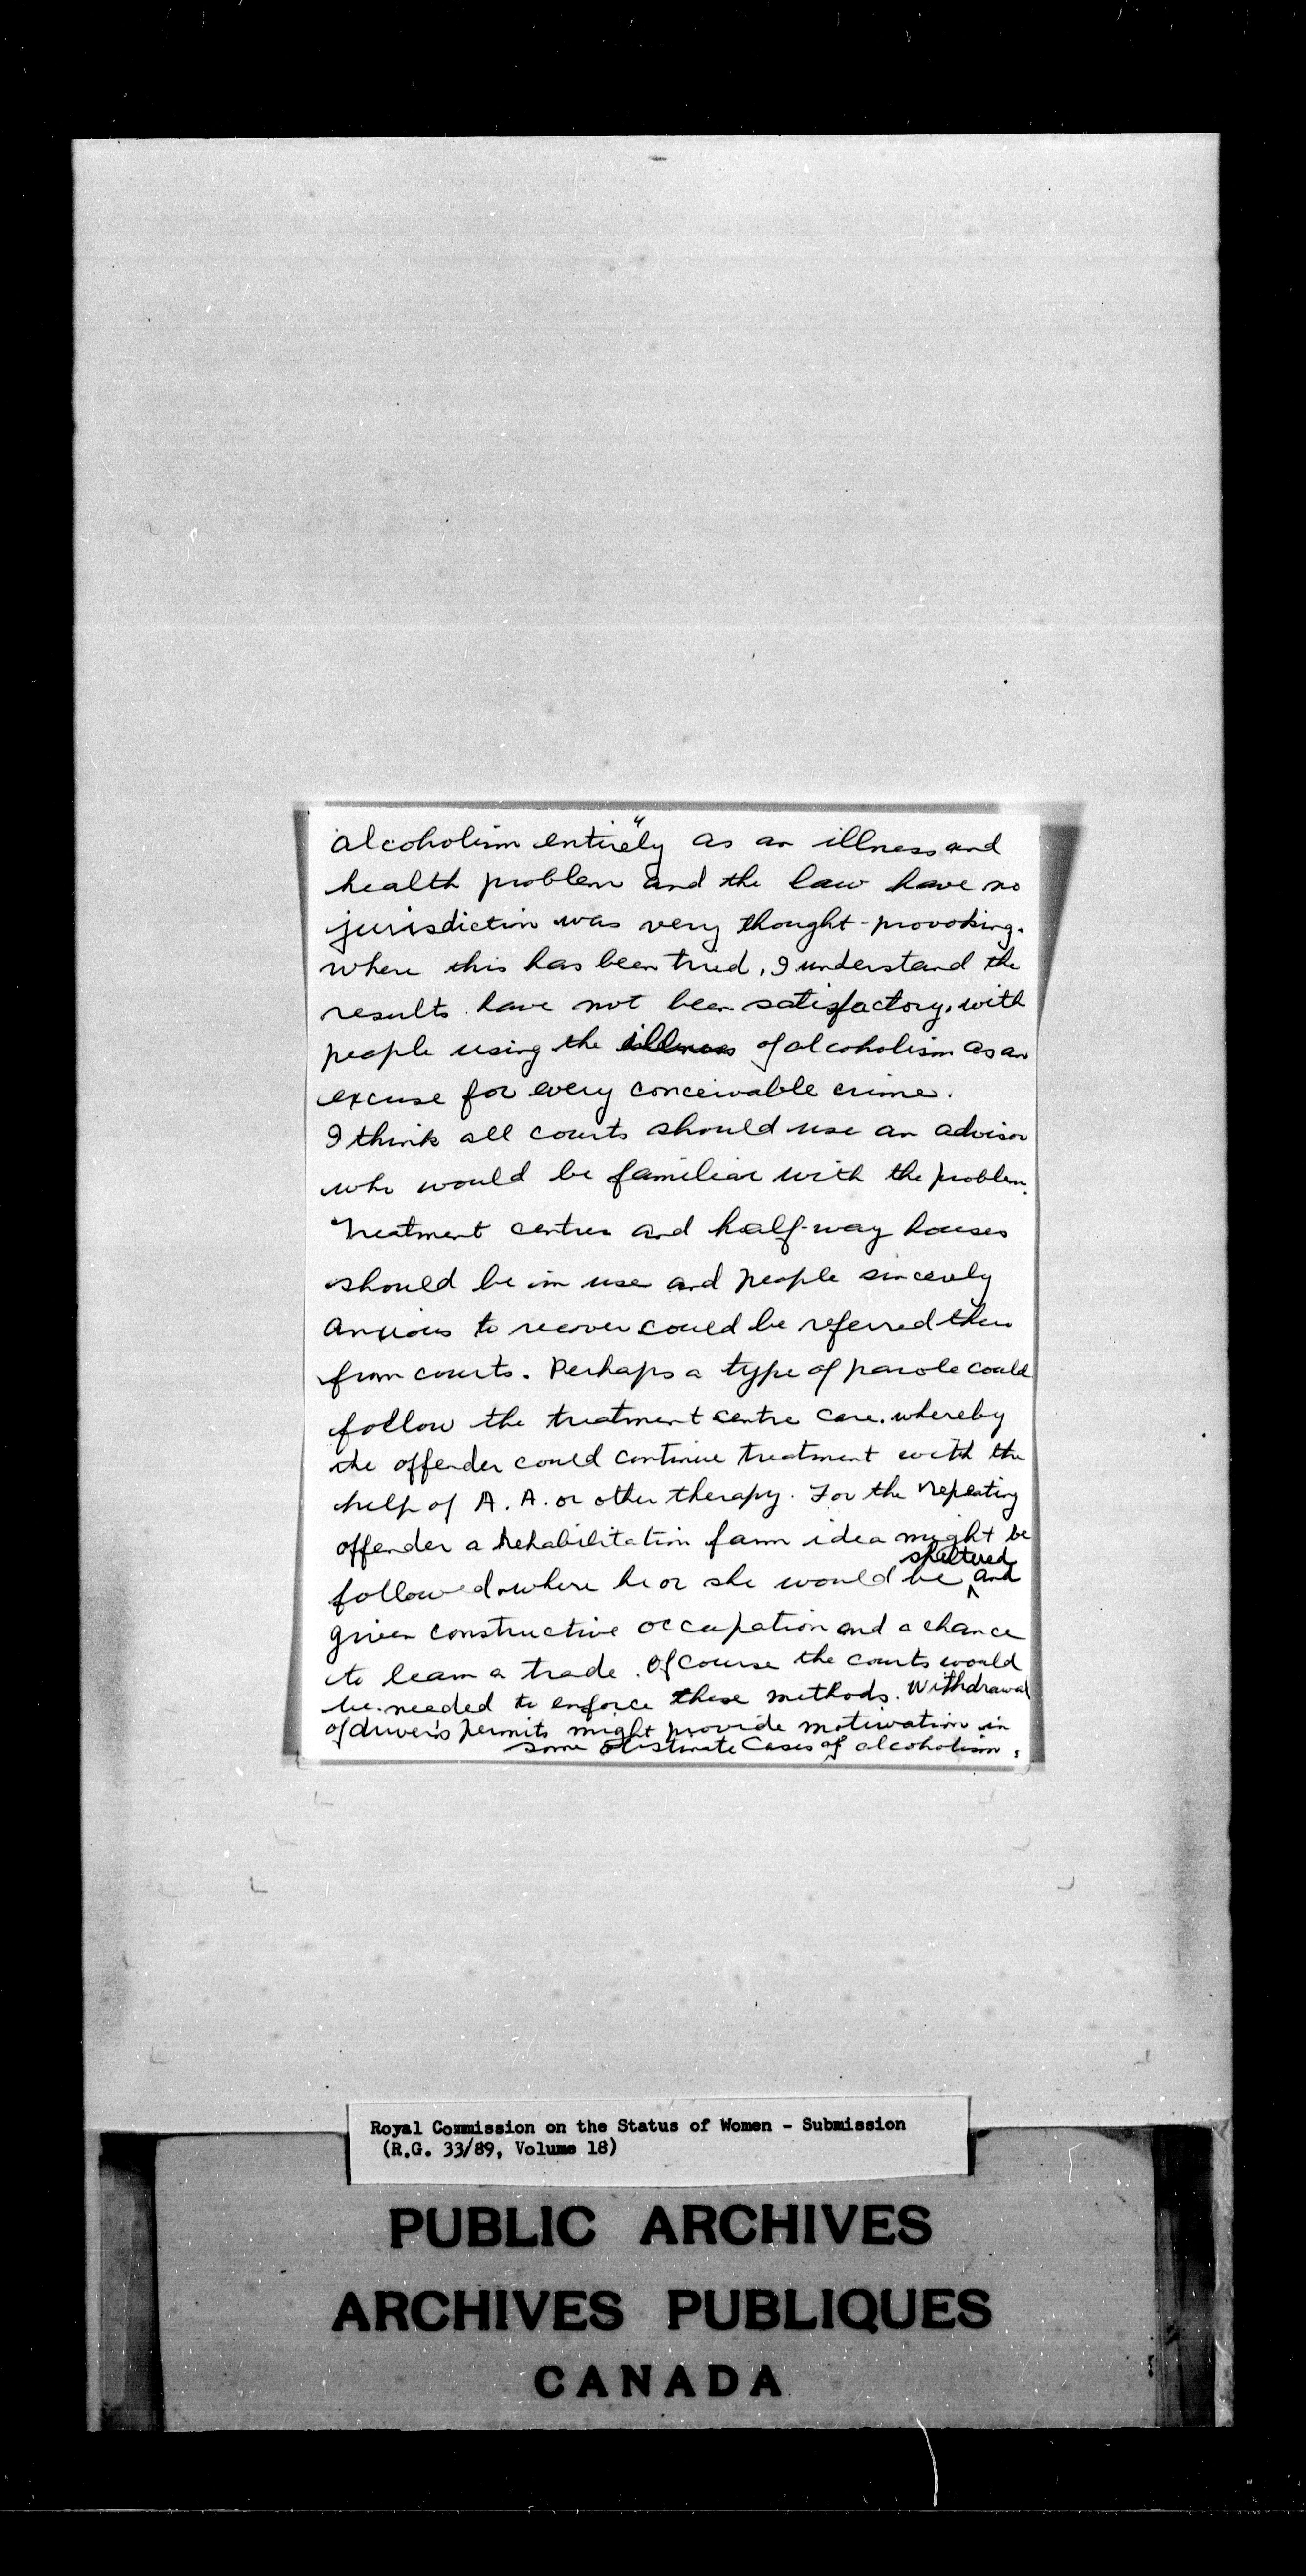 alcoholism entirely" as an illness and
health problem and the law have no
jurisdiction was very thought-provoking.
Where this has been tried, I understand the
results have not been satisfactory, with
people using the illness of alcoholism as an
excuse for every conceivable crime.
I think all courts should use an advisor
who would be familiar with the problem.
Treatment centres and half-way houses
should be in use and people sincerely
anxious to recover could be referred there
from courts. Perhaps a type of parole could
follow the treatment centre care, whereby
the offender could continue treatment with the
help of A. A. or other therapy. For the repeating
offender a rehabilitation farm idea might be
followed where he or she would be sheltered and
given constructive occupation and a chance
to learn a trade. Of course the courts would
be needed to enforce these methods. Withdrawal
of driver's permits might provide motivation in
some obstinate cases of alcoholism.
Royal Commission on the Status of Women - Submission
(R.G. 33/89, Volume 18)
PUBLIC ARCHIVES
ARCHIVES PUBLIQUES
CANADA